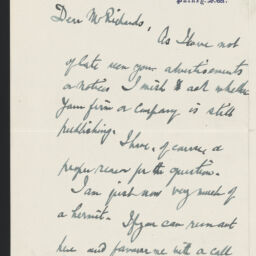 Putney. S.W.
Dear Mr Richards,
As I have not
of late seen your advertisements
or notices I wish to ask whether
your firm or company is still
publishing.
I have, of course, a
proper reason for the question.
I am just now very much of
a hermit. If you can run out
here and favour me with a call